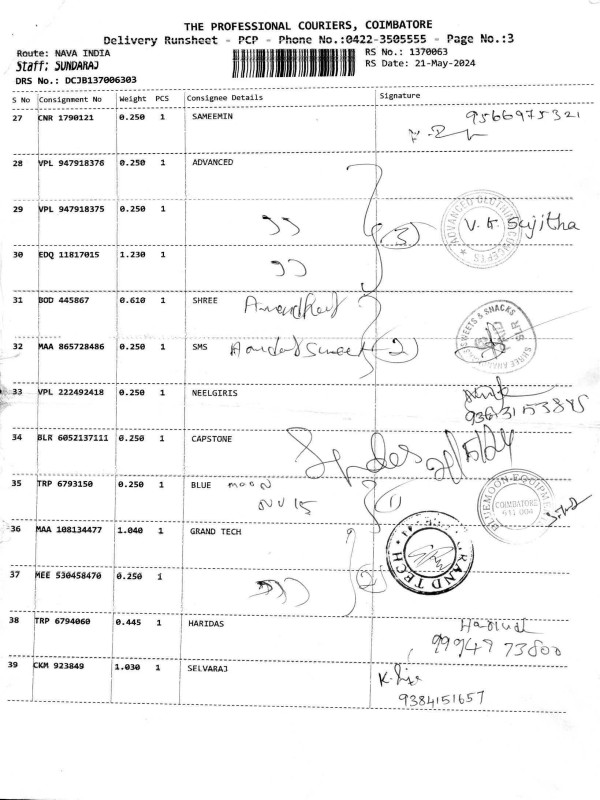 THE PROFESSIONAL COURIERS, COIMBATORE
Delivery Runsheet - PCP - Phone No.:0422-3505555 - Page No.:3
Route: NAVA INDIA RS No.: 1370063
Staff: SUNDARAJ RS Date: 21-May-2024
DRS No.: DCJB137006303
S No Consignment No Weight PCS Consignee Details Signature
27 CNR 1790121 0.250 1 SAMEEMIN 9566975321
28 VPL 947918376 0.250 1 ADVANCED
29 VPL 947918375 0.250 1 3 ADVANCED CLOTHING CONCEPTS V. K. Sujitha
30 EDQ 11817015 1.230 1
31 BOD 445867 0.610 1 SHREE
32 MAA 865728486 0.250 1 SMS 2 SWEETS & SNACKS SLR
33 VPL 222492418 0.250 1 NEELGIRIS
34 BLR 6052137111 0.250 1 CAPSTONE
35 TRP 6793150 0.250 1 BLUE moon 1 BLUEMOON EQUIPM COIMBATORE
36 MAA 108134477 1.040 1 GRAND TECH
37 MEE 530458470 0.250 1 2 GRAND TECH
38 TRP 6794060 0.445 1 HARIDAS
99949 73800
39 CKM 923849 1.030 1 SELVARAJ
9384151657